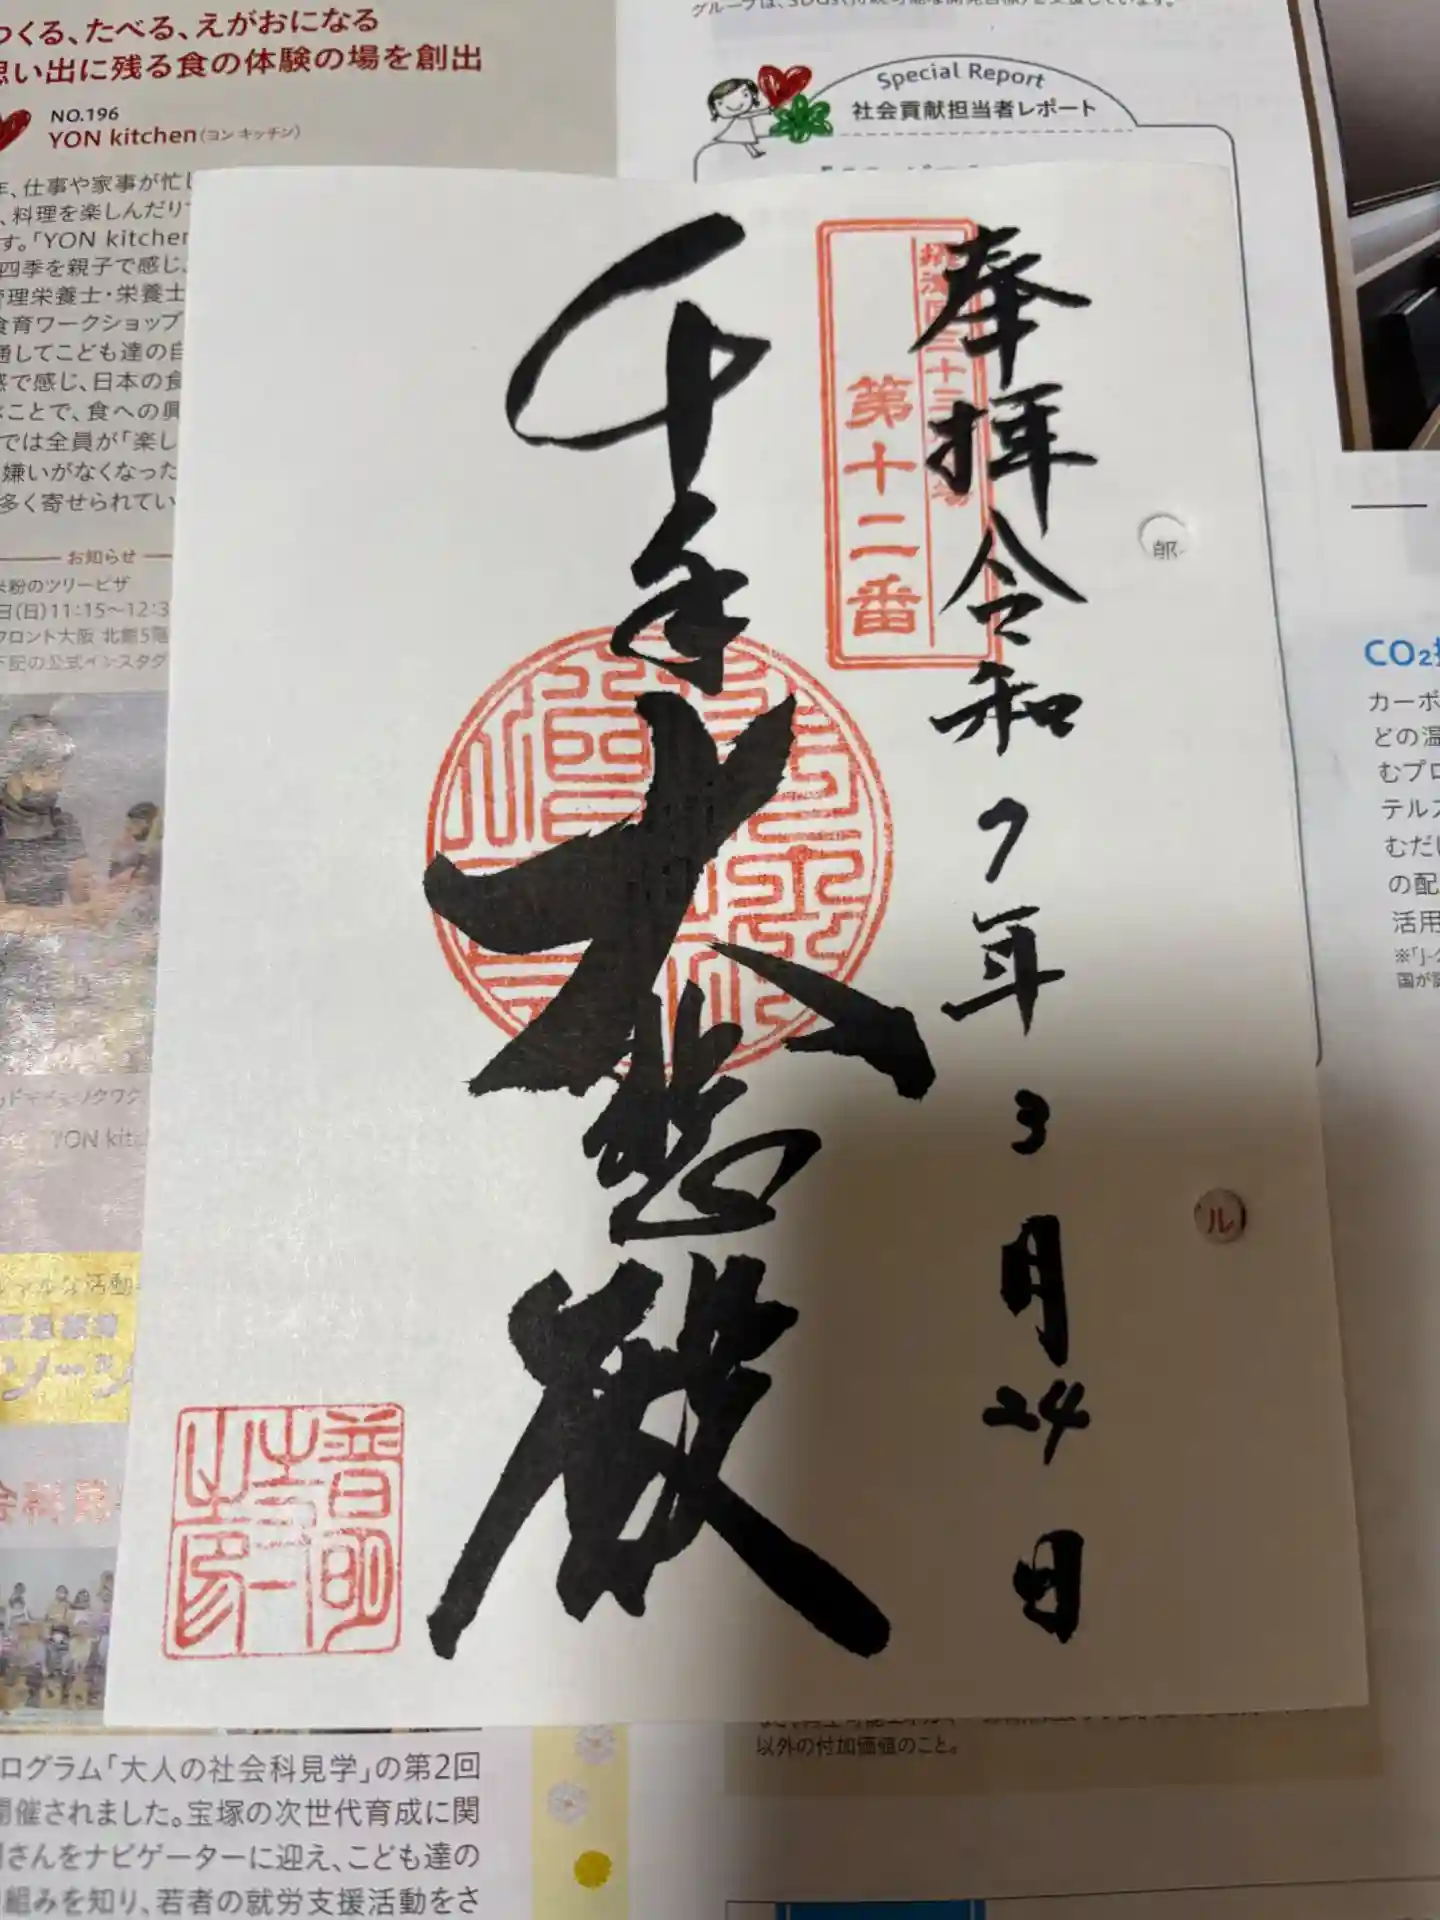 つくる、たべる、えがおになる
思い出に残る食の体験の場を創出
NO.196
YON kitchen(ヨン キッチン)
年、仕事や家事が忙し
、料理を楽しんだり
す。「YON kitchen
四季を親子で感じ、
管理栄養士・栄養士
食育ワークショップ
通してこども達の自
感で感じ、日本の食
ことで、食への興
では全員が「楽し
嫌いがなくなった
多く寄せられてい
お知らせ
米粉のツリーピザ
日(日)11:15～12:3
フロント大阪 北館5階
下記の公式インスタグ
YON kitc
グループは、SDGs(持続可能な開発目標)を支援しています。
Special Report
社会貢献担当者レポート
奉拝 令和7年3月24日
西国三十三
第十二番
千手大悲殿
ル
CO₂
カーボ
どの温
むプロ
テルス
むだい
の配
活用
※「J-
国が
以外の付加価値のこと。
ログラム「大人の社会科見学」の第2回
開催されました。宝塚の次世代育成に関
さんをナビゲーターに迎え、こども達の
組みを知り、若者の就労支援活動をさ